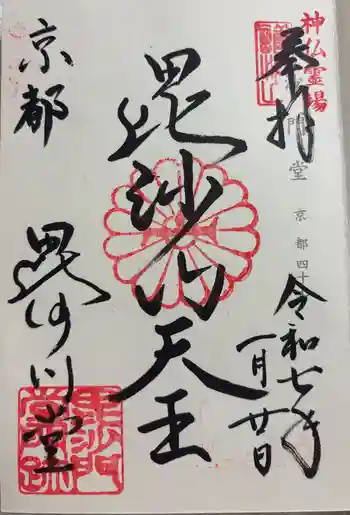 神仏霊場
奉拝
門堂
京都四十
令和七年
一月廿日
毘沙門天王
京都
毘沙門堂